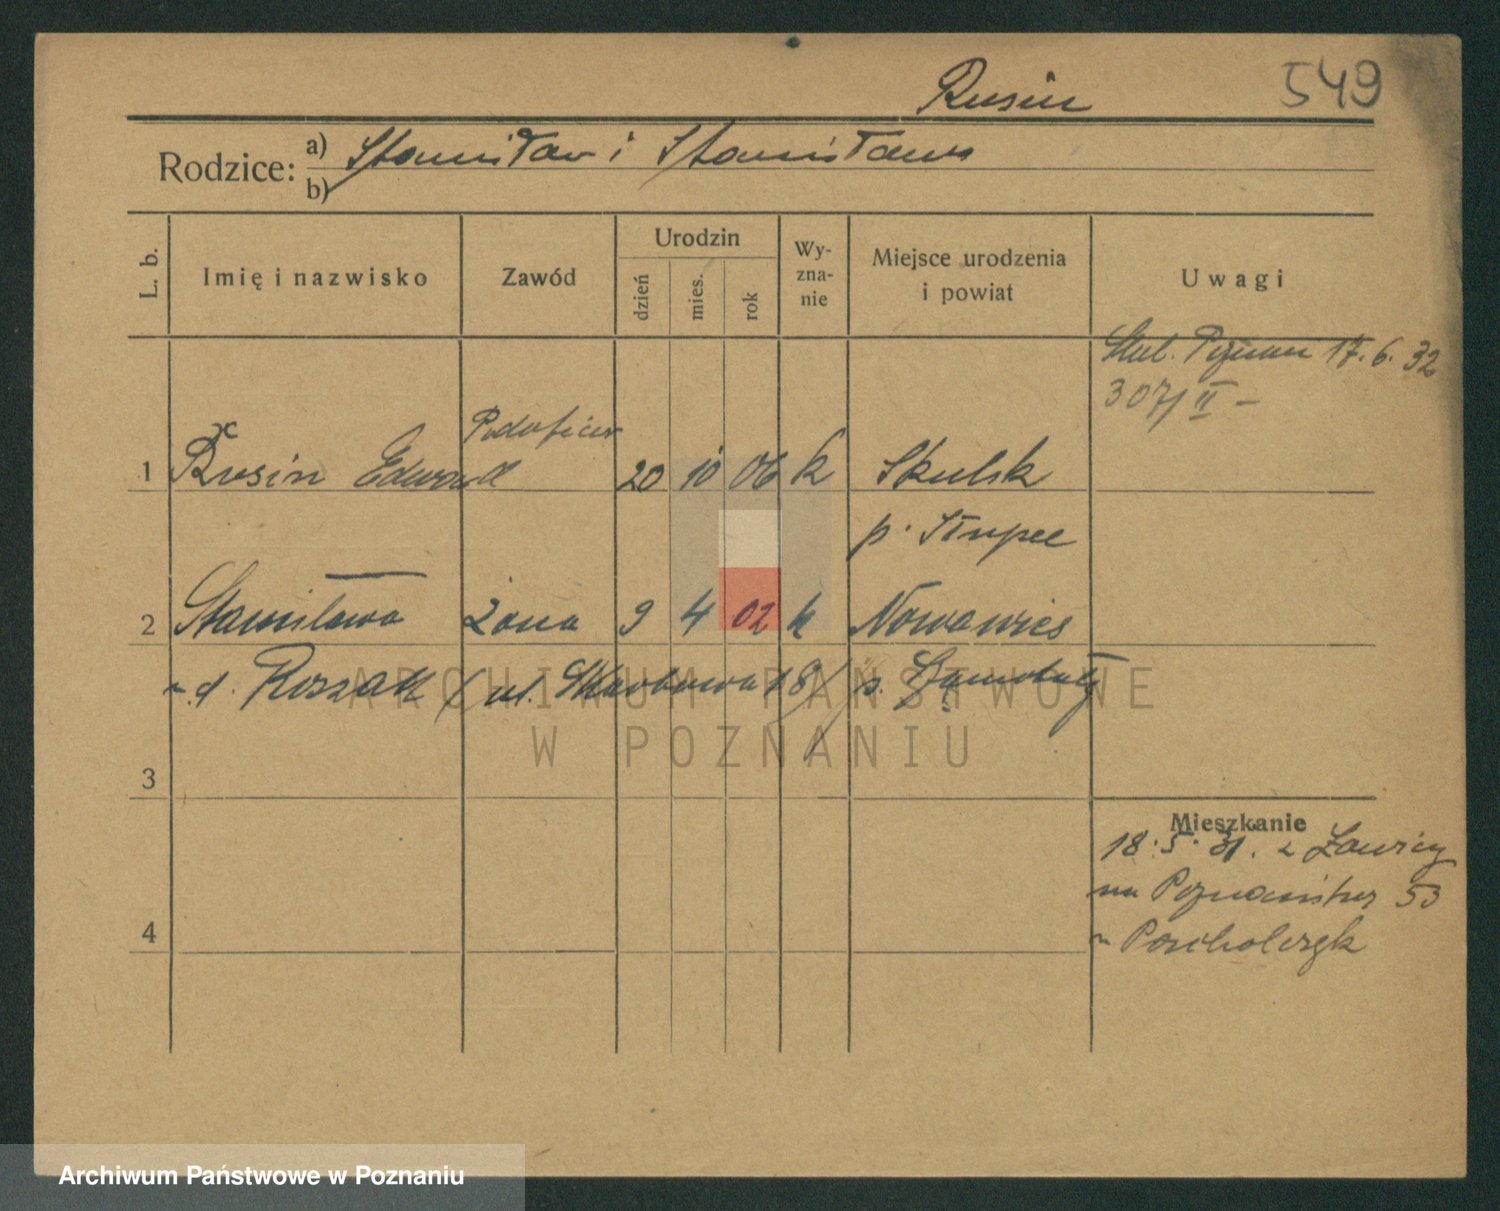 Rusin 549
Rodzice: a) Stanisław i Stanisława
b)
L. b. Imię i nazwisko Zawód Urodzin dzień mies. rok Wy-zna-nie Miejsce urodzenia i powiat Uwagi
Poznań 17. 6. 32
307/II –
Podoficer
1 Rusin Edward 20 10 06 k Skulsk
p. Słupce
2 Stanisława żona 9 4 02 k Nowawieś
z d. Roszak (ul. Skarbowa 18/ p. Szamotuły
ARCHIWUM PAŃSTWOWE
W POZNANIU
3
Mieszkanie
18. 5. 31. z Ławicy
53
4
Archiwum Państwowe w Poznaniu